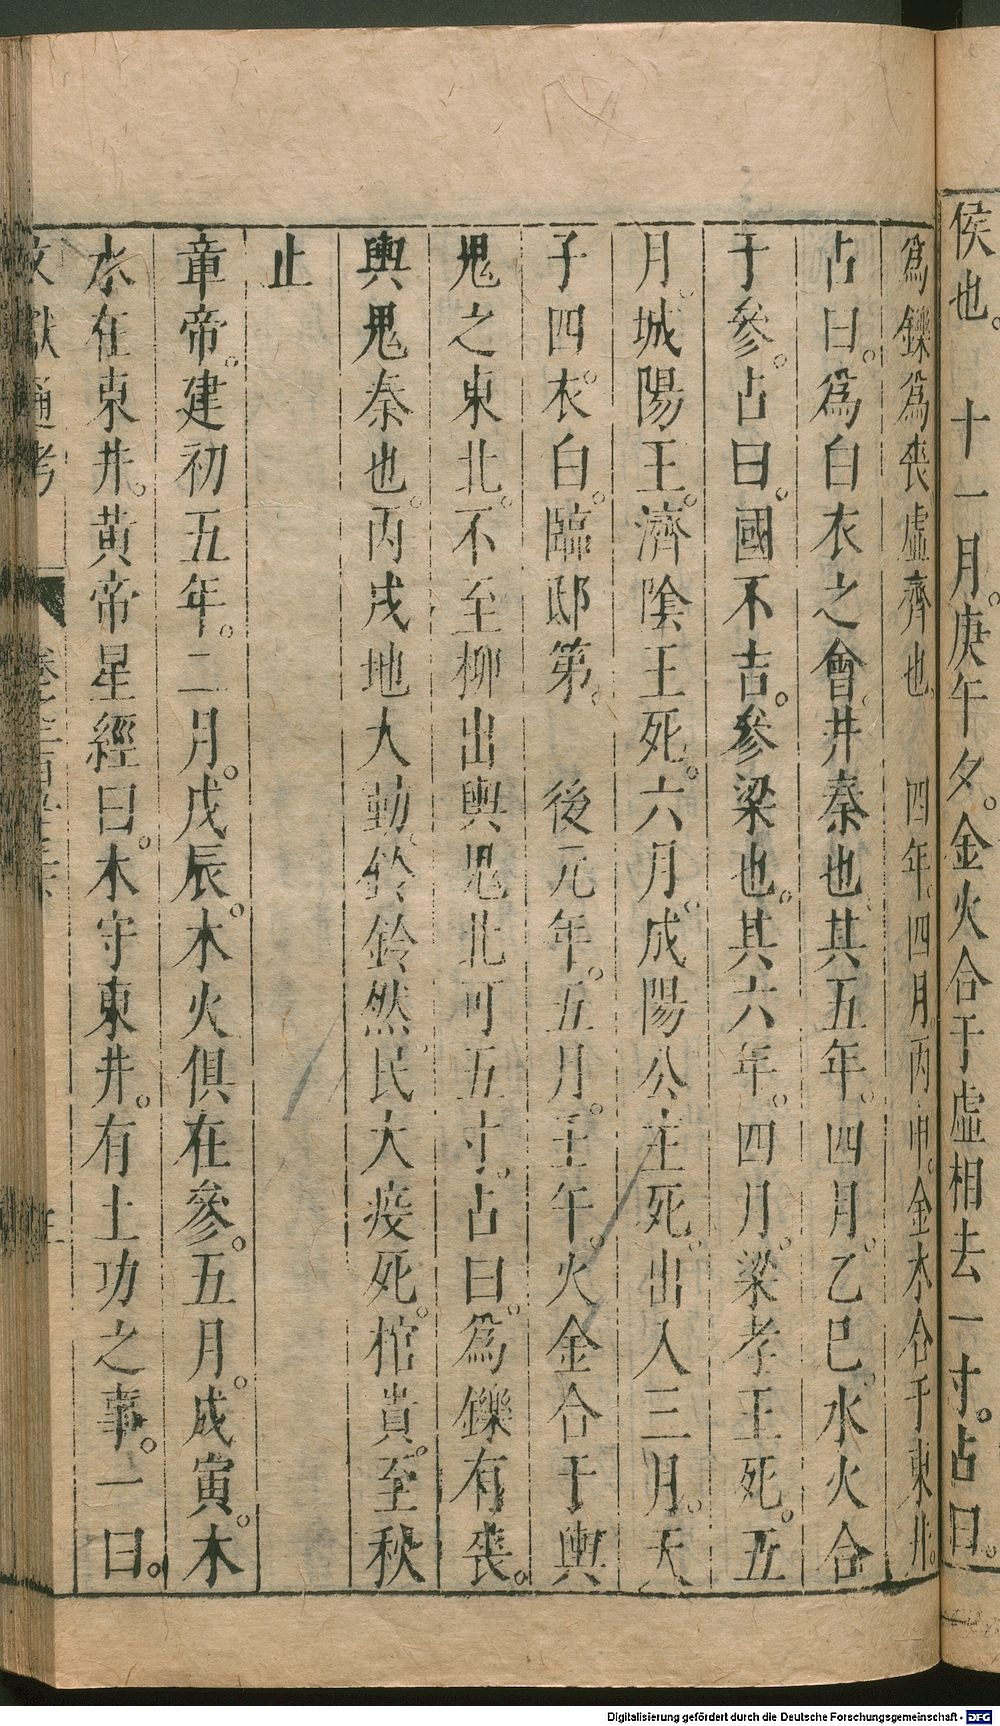 侯也。　十一月。庚午夕。金火合于虛相去一寸。占曰。
爲鑠爲喪虛齊也。　四年。四月。丙申。金木合于東井。
占曰。爲白衣之會。井秦也。其五年。四月。乙巳。水火合
于參。占曰。國不吉。參梁也。其六年。四月。梁孝王死。五
月。城陽王。濟陰王死。六月。成陽公主死。出入三月。天
子四衣白。臨邸第。　後元年。五月。壬午。火金合于輿
鬼之東北。不至柳出輿鬼北可五寸。占曰。爲鑠有喪。
輿鬼秦也。丙戌地大動。鈴鈴然。民大疫死。棺貴。至秋
止
章帝。建初五年。二月。戊辰。木火俱在參。五月。戊寅。木
水在東井。黃帝星經曰。木守東井。有土功之事。一曰。
文獻通考
Digitalisierung gefördert durch die Deutsche Forschungsgemeinschaft - DFG